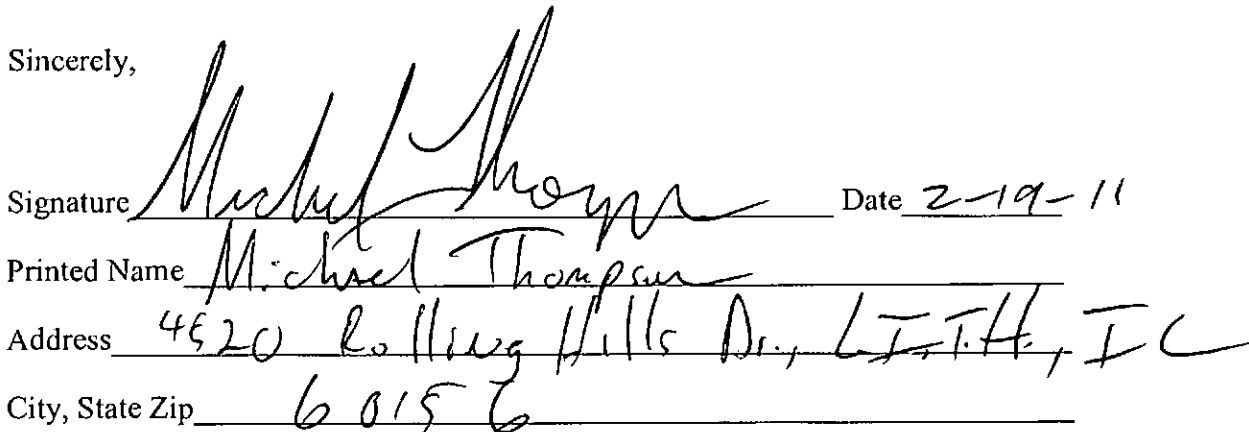 Sincerely,
Signature Michael Thompson Date 2-19-11
Printed Name Michael Thompson
Address 4520 Rolling Hills Dr., L.I.T.H., IL
City, State Zip 60156